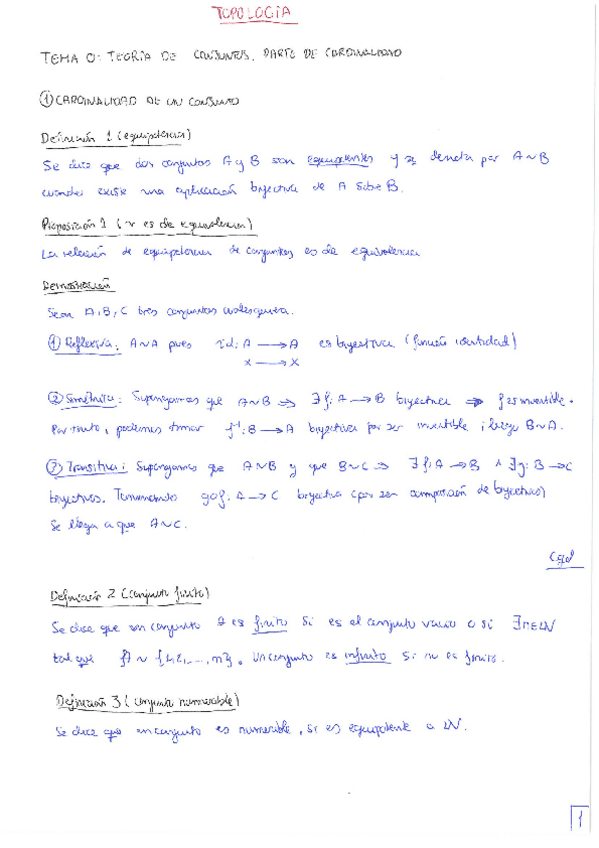 TOPOLOGÍA
TEMA 0: TEORÍA DE CONJUNTOS. PARTE DE CARDINALIDAD
① CARDINALIDAD DE UN CONJUNTO
Definición 1 (equipotencia)
Se dice que dos conjuntos A y B son equipotentes y se denota por A ~ B
cuando existe una aplicación biyectiva de A sobre B.
Proposición 1 (~ es de equivalencia)
La relación de equipotencia de conjuntos es de equivalencia
Demostración
Sean A, B, C tres conjuntos cualesquiera.
① Reflexiva: A~A pues id: A → A es biyectiva (función identidad)
x → x
② Simétrica: Supongamos que A~B ⇒ ∃ f: A → B biyectiva ⇒ f es invertible.
Por tanto, podemos tomar f⁻¹: B → A biyectiva por ser invertible, luego B~A.
③ Transitiva: Supongamos que A~B y que B~C ⇒ ∃ f: A → B ∧ ∃ g: B → C
biyectivas. Tomando g∘f: A → C biyectiva (por ser composición de biyectivas)
Se llega a que A~C.
cqd
Definición 2 (conjunto finito)
Se dice que un conjunto A es finito si es el conjunto vacío o si ∃ n∈ℕ
tal que A ~ {1,2,...,n}. Un conjunto es infinito si no es finito.
Definición 3 (conjunto numerable)
Se dice que un conjunto es numerable, si es equipotente a ℕ.
1